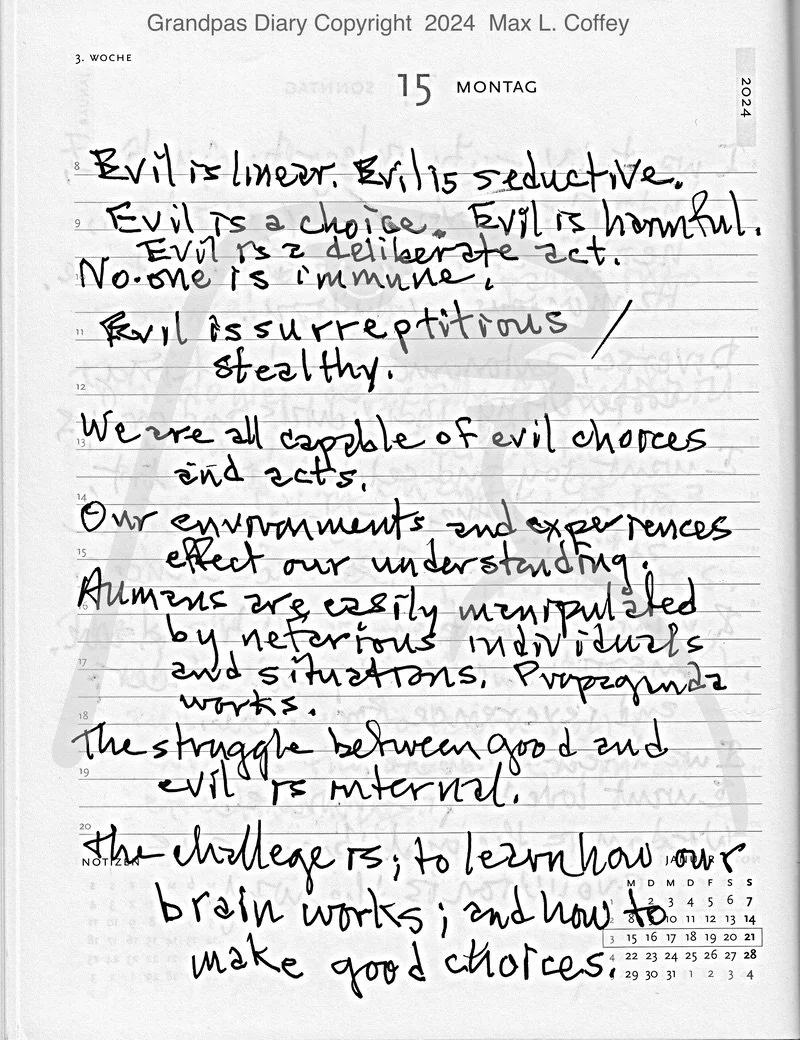 Grandpas Diary Copyright 2024 Max L. Coffey
3. WOCHE
15 MONTAG
2024
8 Evil is linear. Evil is seductive.
9 Evil is a choice. Evil is harmful.
Evil is a deliberate act.
10 No-one is immune.
11 Evil is surreptitious /
stealthy.
12
13 We are all capable of evil choices
and acts.
14 Our environments and experiences
15 effect our understanding.
16 Humans are easily manipulated
by nefarious individuals
17 and situations. Propaganda
works.
18 The struggle between good and
19 evil is internal.
20
The challege is; to learn how our
NOTIZEN
JANUAR
brain works; and how to
make good choices.
M D M D F S S
1 1 2 3 4 5 6 7
2 8 9 10 11 12 13 14
3 15 16 17 18 19 20 21
4 22 23 24 25 26 27 28
29 30 31 1 2 3 4